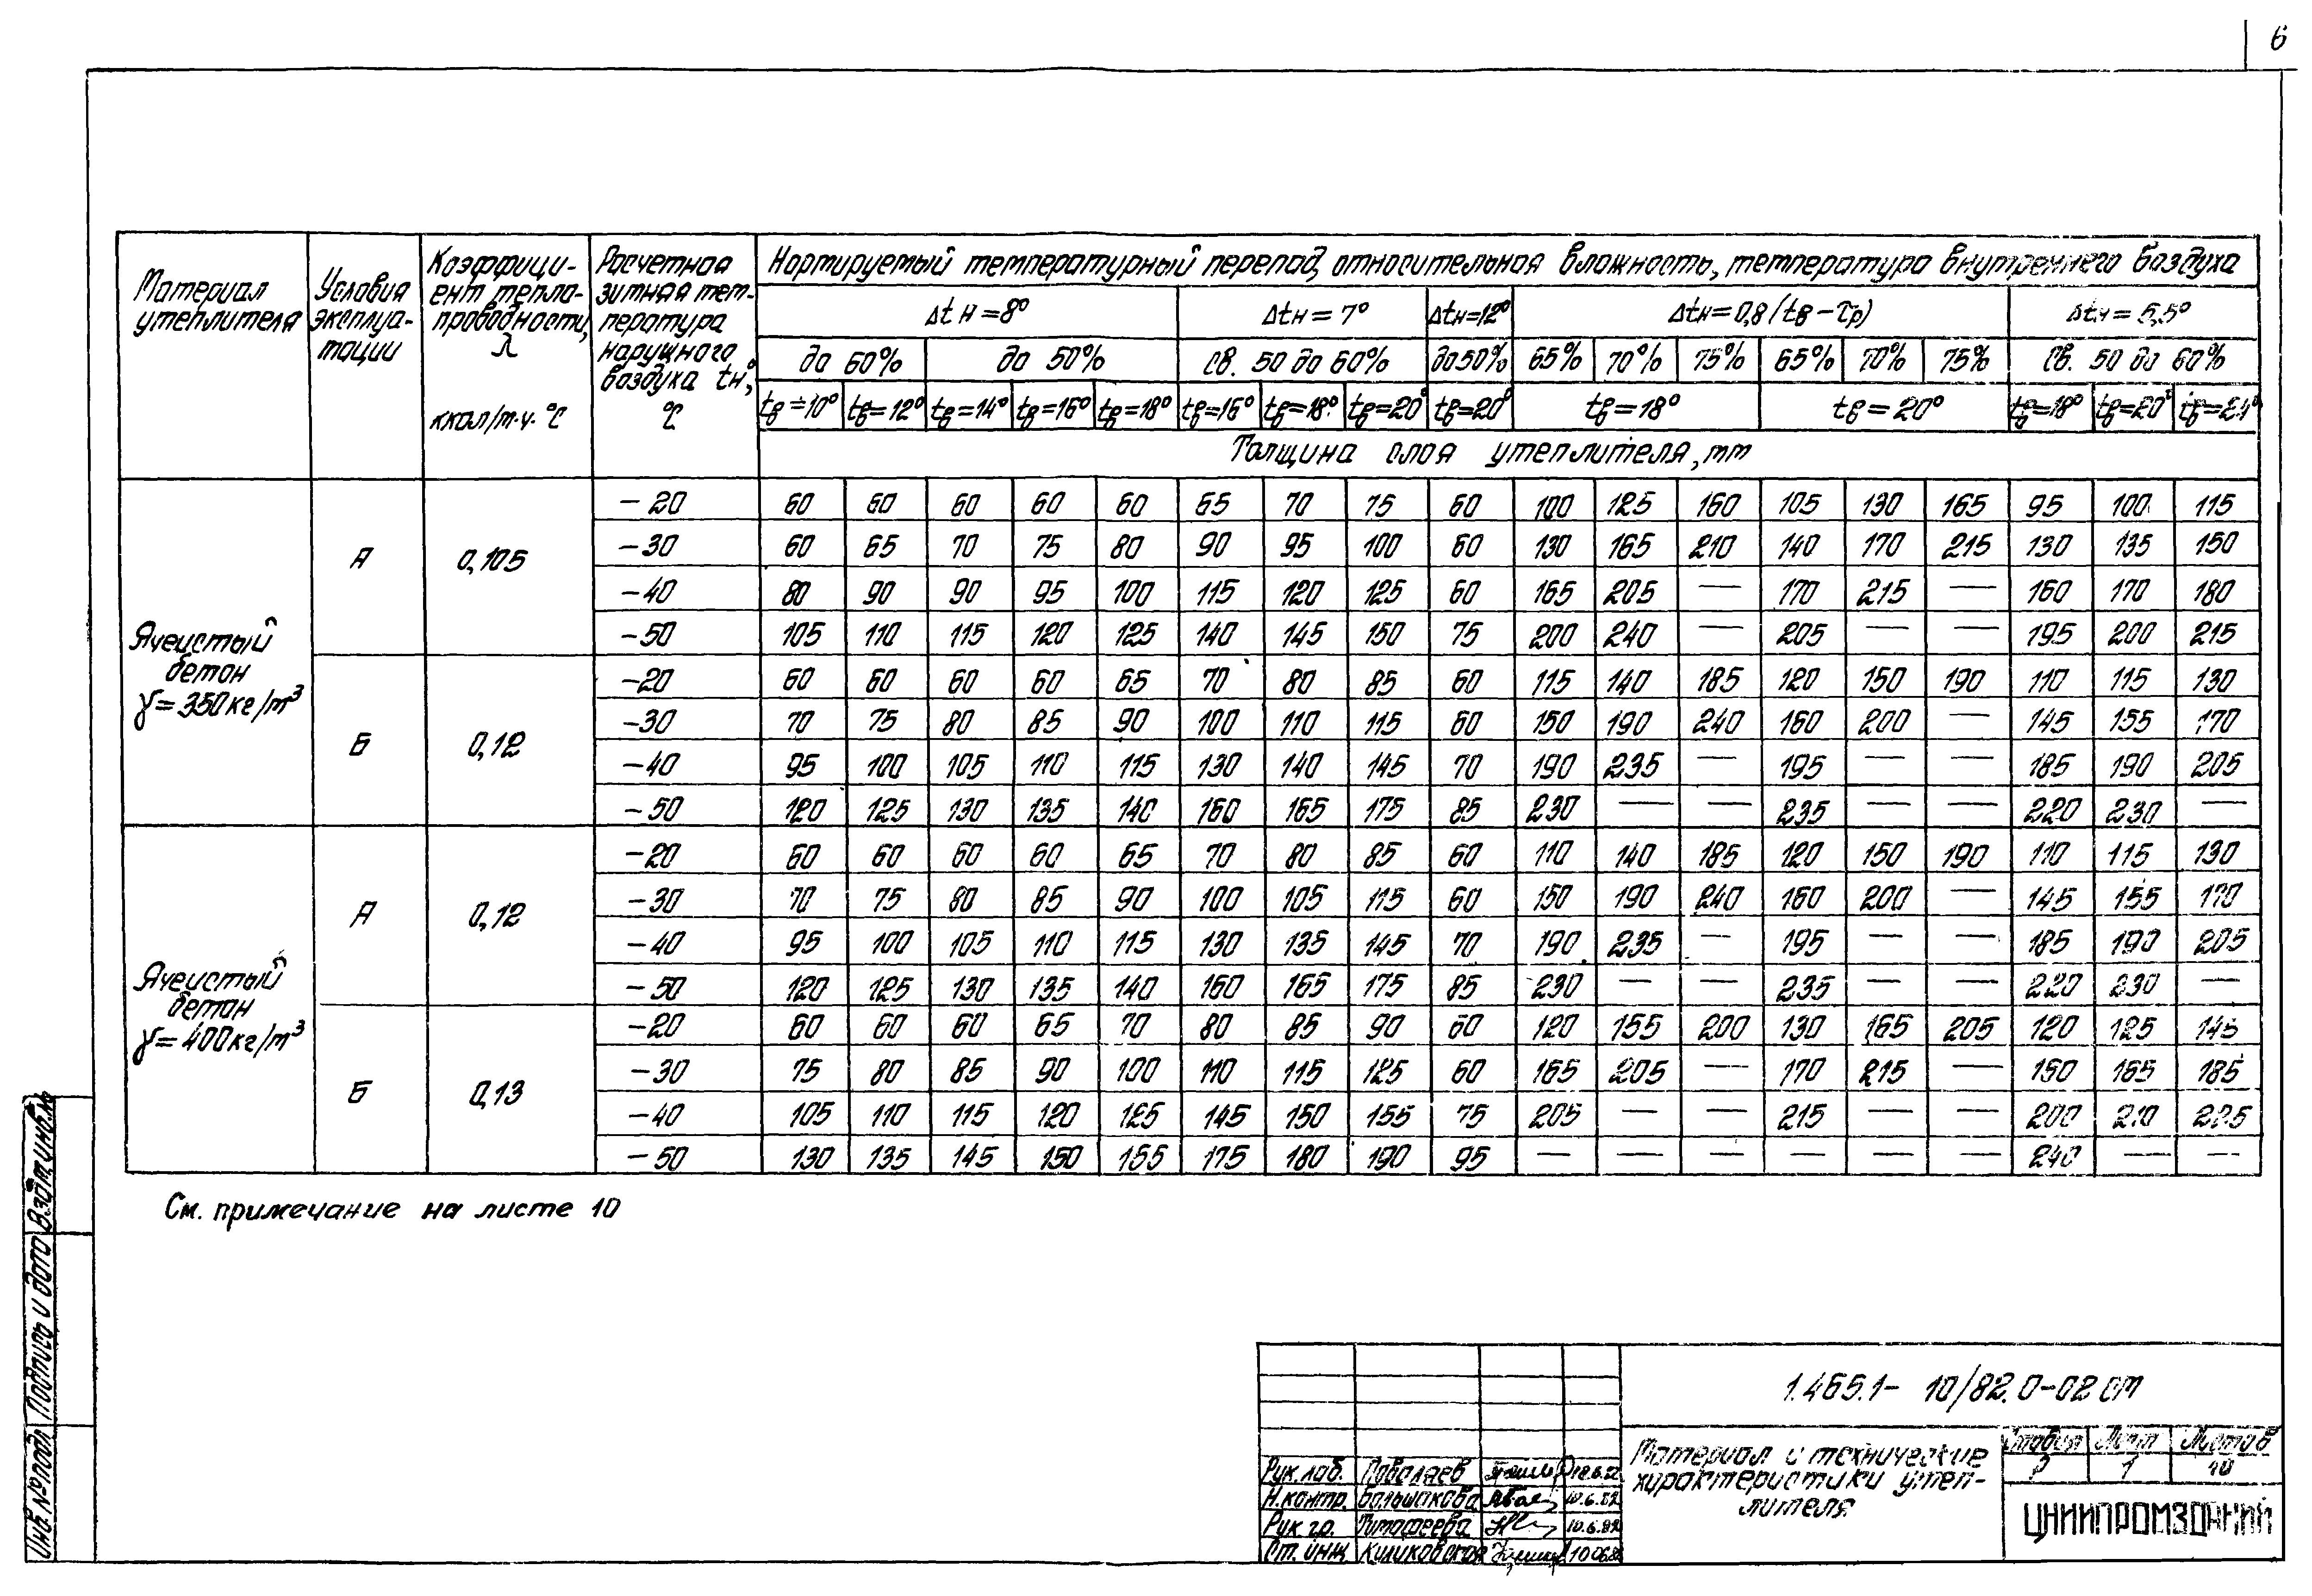 6
Материал утеплителя
Условия эксплуа-тации
Коэффици-ент тепло-проводности, λ ккал/м·ч·°С
Расчетная зимняя тем-пература наружного воздуха tн, °С
Нормируемый температурный перепад, относительная влажность, температура внутреннего воздуха
Δtн=8° Δtн=7° Δtн=12° Δtн=0,8(tв-τр) Δtн=5,5°
до 60% до 50% св. 50 до 60% до 50% 65% 70% 75% 65% 70% 75% св. 50 до 60%
tв=10° tв=12° tв=14° tв=16° tв=18° tв=16° tв=18° tв=20° tв=20° tв=18° tв=20° tв=18° tв=20° tв=24°
Толщина слоя утеплителя, мм
Ячеистый бетон γ=350кг/м³
А 0,105
-20 60 60 60 60 60 65 70 75 60 100 125 160 105 130 165 95 100 115
-30 60 65 70 75 80 90 95 100 60 130 165 210 140 170 215 130 135 150
-40 80 90 90 95 100 115 120 125 60 165 205 — 170 215 — 160 170 180
-50 105 110 115 120 125 140 145 150 75 200 240 — 205 — — 195 200 215
Б 0,12
-20 60 60 60 60 65 70 80 85 60 115 140 185 120 150 190 110 115 130
-30 70 75 80 85 90 100 110 115 60 150 190 240 160 200 — 145 155 170
-40 95 100 105 110 115 130 140 145 70 190 235 — 195 — — 185 190 205
-50 120 125 130 135 140 160 165 175 85 230 — — 235 — — 220 230 —
Ячеистый бетон γ=400кг/м³
А 0,12
-20 60 60 60 60 65 70 80 85 60 110 140 185 120 150 190 110 115 130
-30 70 75 80 85 90 100 105 115 60 150 190 240 160 200 — 145 155 170
-40 95 100 105 110 115 130 135 145 70 190 235 — 195 — — 185 190 205
-50 120 125 130 135 140 160 165 175 85 230 — — 235 — — 220 230 —
Б 0,13
-20 60 60 60 65 70 80 85 90 60 120 155 200 130 165 205 120 125 145
-30 75 80 85 90 100 110 115 125 60 165 205 — 170 215 — 150 165 185
-40 105 110 115 120 125 145 150 155 75 205 — — 215 — — 200 210 225
-50 130 135 145 150 155 175 180 190 95 — — — — — — 240 — —
См. примечание на листе 10
Инв.№подл. Подпись и дата Взам.инв.№
1.465.1- 10/82.0-02 СМ
Материал и технические
характеристики утеп-
лителя
Стадия Лист Листов
Р 1 10
ЦНИИПРОМЗДАНИЙ
Рук.лаб. Поваляев
Н.контр. Большакова 10.6.82
Рук.гр. Тимофеева 10.6.82
Ст.инж. Куликовская